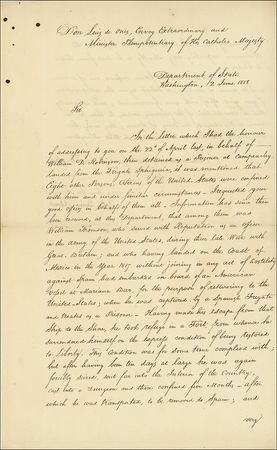 Don Luis de Onis, Envoy Extraordinary and
Minister Plenipotentiary of His Catholic Majesty
Department of State
Washington, 12 June. 1818.
Sir
In the Letter which I had the honour
of addressing to you on the 22d of April last, in behalf of
William D. Robinson, then detained as a Prisoner at Campeachy,
landed from the Frigate Iphigenia, it was mentioned that
Eight other Persons, Citizens of the United States were confined
with him and under similar circumstances — Requested your
good offices in behalf of them all. Information has since then
been received, at this Department, that among them was
William who served with Reputation as an officer
in the army of the United States, during their late War with
Great Britain; and who having landed on the Coast of
Mexico in the Year 1817, without joining in any act of hostility
against Spain had embarked on board of an American
Vessel at Mariana Bar, for the purpose of returning to the
United States, when he was captured by a Spanish Frigate
and treated as a Prisoner — Having made his Escape from that
Ship to the Shore, he took refuge in a Fort, from whence he
surrendered himself on the express condition of being restored
to Liberty. This Condition was for some time complied with;
but after having been ten days at large he was again
forcibly seized, sent far into the Interior of the Country,
cast into a Dungeon and there confined five Months — after
which he was transported, to be removed to Spain; and